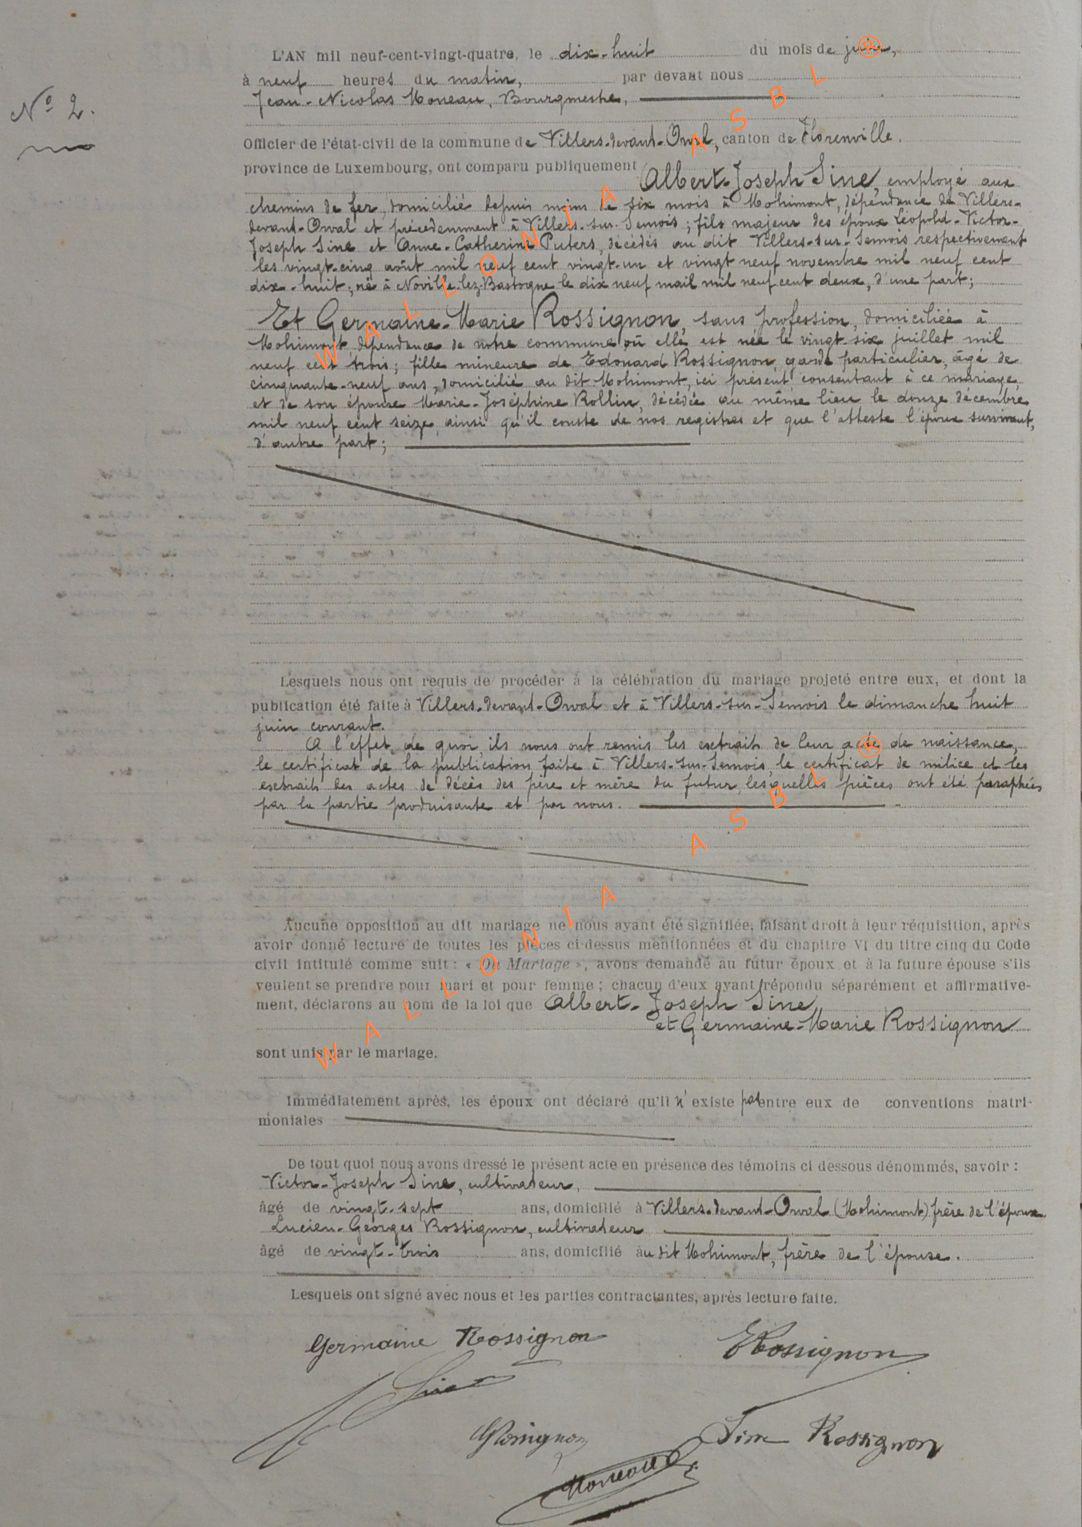 L'AN mil neuf-cent-vingt-quatre, le dix-huit du mois de juin,
à neuf heures du matin, par devant nous
Nº 2.
Jean-Nicolas Moneau, Bourgmestre,
Officier de l'état-civil de la commune de Villers-devant-Orval, canton de Florenville.
province de Luxembourg, ont comparu publiquement Albert-Joseph Sine, employé aux
chemins de fer, domicilié depuis moins de six mois à Mohimont, dépendance de Villers-
devant-Orval et précédemment à Villers-sur-Semois, fils majeur des époux Léopold-Victor-
Joseph Sine et Anne-Catherine Puters, décédés au dit Villers-sur-Semois respectivement
les vingt-cinq août mil neuf cent vingt-un et vingt neuf novembre mil neuf cent
dix-huit; né à Noville-lez-Bastogne le dix neuf mail mil neuf cent deux, d'une part;
Et Germaine-Marie Rossignon, sans profession, domiciliée à
Mohimont dépendance de notre commune où elle est née le vingt-six juillet mil
neuf cent trois; fille mineure de Edouard Rossignon, garde particulier, âgé de
cinquante-neuf ans, domicilié au dit Mohimont, ici présent consentant à ce mariage,
et de son épouse Marie-Joséphine Rollin, décédée au même lieu le douze décembre
mil neuf cent seize, ainsi qu'il conste de nos registres et que l'atteste l'époux survivant,
d'autre part;
Lesquels nous ont requis de procéder à la célébration du mariage projeté entre eux, et dont la
publication été faite à Villers-devant-Orval et à Villers-sur-Semois le dimanche huit
juin courant.
A l'effet de quoi, ils nous ont remis les extraits de leur acte de naissance,
le certificat de la publication faite à Villers-sur-Semois, le certificat de milice et les
extraits des actes de décès des père et mère du futur, lesquelles pièces ont été paraphées
par la partie produisante et par nous.
Aucune opposition au dit mariage ne nous ayant été signifiée, faisant droit à leur réquisition, après
avoir donné lecture de toutes les pièces ci-dessus mentionnées et du chapitre VI du titre cinq du Code
civil intitulé comme suit : « Du Mariage », avons demandé au futur époux et à la future épouse s'ils
veulent se prendre pour mari et pour femme ; chacun d'eux ayant répondu séparément et affirmative-
ment, déclarons au nom de la loi que Albert-Joseph Sine
et Germaine-Marie Rossignon
sont unis par le mariage.
Immédiatement après, les époux ont déclaré qu'il n'existe pas entre eux de conventions matri-
moniales
De tout quoi nous avons dressé le présent acte en présence des témoins ci dessous dénommés, savoir :
Victor-Joseph Sine, cultivateur,
âgé de vingt-sept ans, domicilié à Villers-devant-Orval (Mohimont) frère de l'époux
Lucien-Georges Rossignon, cultivateur
âgé de vingt-trois ans, domicilié au dit Mohimont, frère de l'épouse.
Lesquels ont signé avec nous et les parties contractantes, après lecture faite.
Germaine Rossignon
ERossignon
Sine
Rossignon
Sine Rossignon
Moneau
WALLONIA ASBL ®
WALLONIA ASBL ®